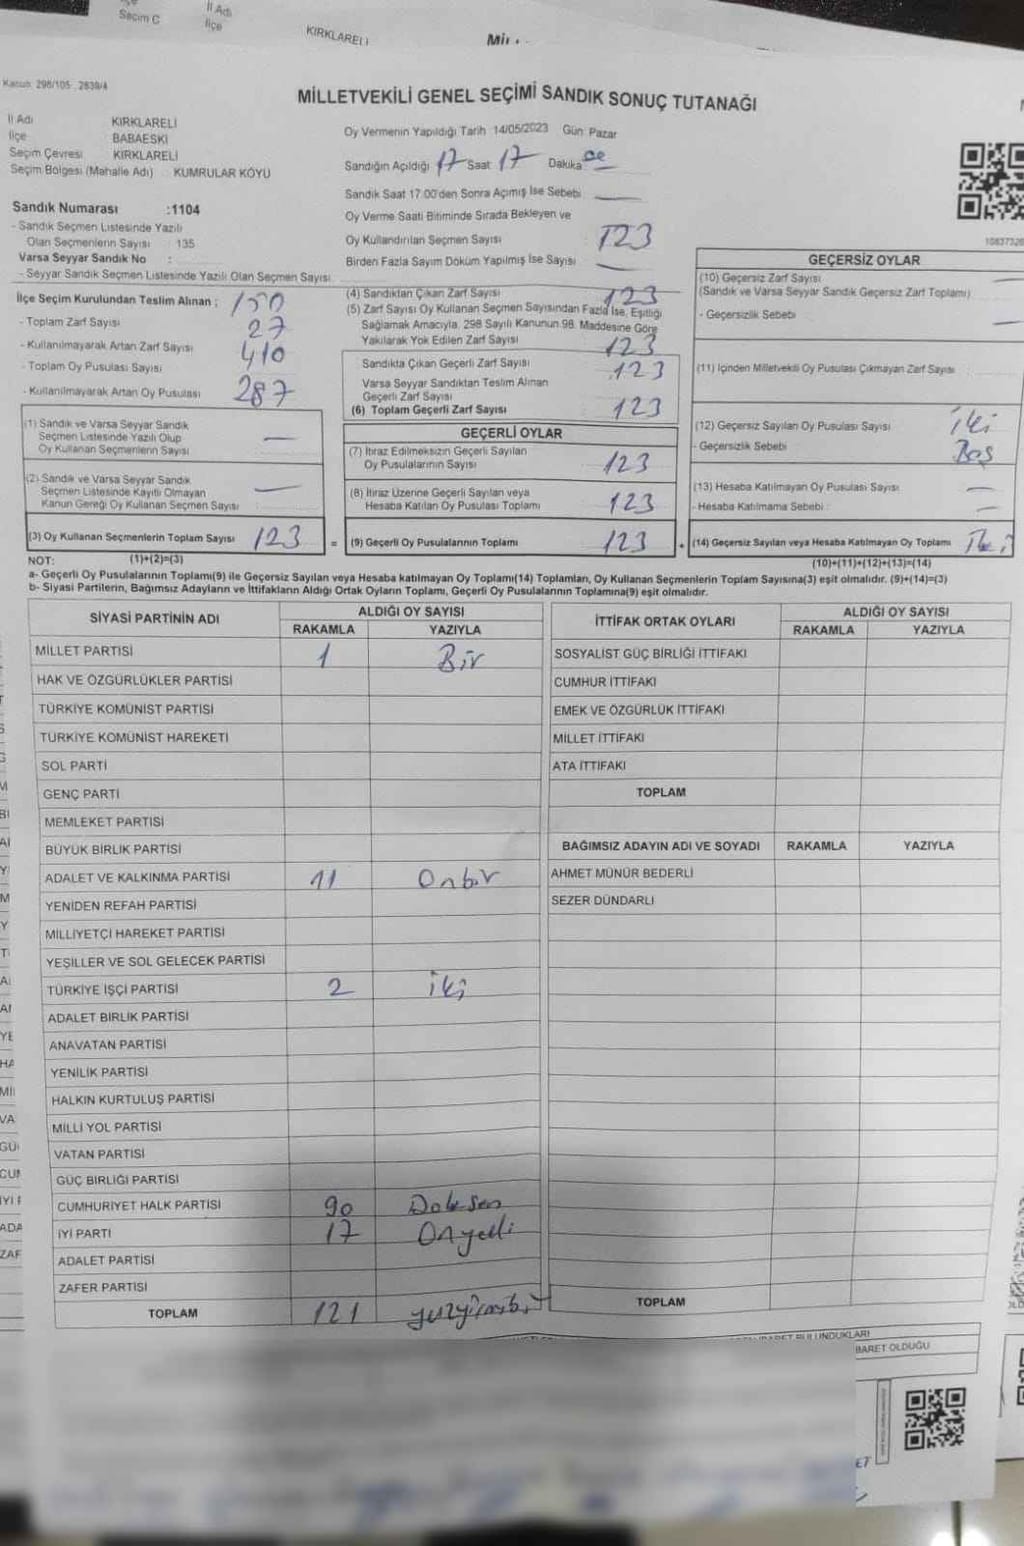 Seçim C
İl Adı
İlçe
KIRKLARELİ
Kanun 298/105 , 2839/4
MİLLETVEKİLİ GENEL SEÇİMİ SANDIK SONUÇ TUTANAĞI
İl Adı KIRKLARELİ
İlçe BABAESKİ
Seçim Çevresi KIRKLARELİ
Seçim Bölgesi (Mahalle Adı) KUMRULAR KÖYÜ
Oy Vermenin Yapıldığı Tarih 14/05/2023 Gün: Pazar
Sandığın Açıldığı 17 Saat 17 Dakika
Sandık Saat 17:00'den Sonra Açımış İse Sebebi
Sandık Numarası :1104
- Sandık Seçmen Listesinde Yazılı
Olan Seçmenlerin Sayısı : 135
Varsa Seyyar Sandık No :
- Seyyar Sandık Seçmen Listesinde Yazılı Olan Seçmen Sayısı
Oy Verme Saati Bitiminde Sırada Bekleyen ve
Oy Kullandırılan Seçmen Sayısı 123
Birden Fazla Sayım Döküm Yapılmış İse Sayısı
İlçe Seçim Kurulundan Teslim Alınan :
- Toplam Zarf Sayısı 150
- Kullanılmayarak Artan Zarf Sayısı 27
- Toplam Oy Pusulası Sayısı 410
- Kullanılmayarak Artan Oy Pusulası 287
(1) Sandık ve Varsa Seyyar Sandık
Seçmen Listesinde Yazılı Olup
Oy Kullanan Seçmenlerin Sayısı —
(2) Sandık ve Varsa Seyyar Sandık
Seçmen Listesinde Kayıtlı Olmayan
Kanun Gereği Oy Kullanan Seçmen Sayısı —
(3) Oy Kullanan Seçmenlerin Toplam Sayısı 123
(4) Sandıktan Çıkan Zarf Sayısı 123
(5) Zarf Sayısı Oy Kullanan Seçmen Sayısından Fazla İse, Eşitliği
Sağlamak Amacıyla, 298 Sayılı Kanunun 98. Maddesine Göre
Yakılarak Yok Edilen Zarf Sayısı 123
Sandıkta Çıkan Geçerli Zarf Sayısı 123
Varsa Seyyar Sandıktan Teslim Alınan
Geçerli Zarf Sayısı
(6) Toplam Geçerli Zarf Sayısı 123
GEÇERLİ OYLAR
(7) İtiraz Edilmeksizin Geçerli Sayılan
Oy Pusulalarının Sayısı 123
(8) İtiraz Üzerine Geçerli Sayılan veya
Hesaba Katılan Oy Pusulası Toplamı 123
= (9) Geçerli Oy Pusulalarının Toplamı 123
10837326
GEÇERSİZ OYLAR
(10) Geçersiz Zarf Sayısı
(Sandık ve Varsa Seyyar Sandık Geçersiz Zarf Toplamı)
- Geçersizlik Sebebi
(11) İçinden Milletvekili Oy Pusulası Çıkmayan Zarf Sayısı
(12) Geçersiz Sayılan Oy Pusulası Sayısı iki
- Geçersizlik Sebebi Boş
(13) Hesaba Katılmayan Oy Pusulası Sayısı —
- Hesaba Katılmama Sebebi : —
+ (14) Geçersiz Sayılan veya Hesaba Katılmayan Oy Toplamı
NOT: (1)+(2)=(3) (10)+(11)+(12)+(13)=(14)
a- Geçerli Oy Pusulalarının Toplamı(9) ile Geçersiz Sayılan veya Hesaba katılmayan Oy Toplamı(14) Toplamları, Oy Kullanan Seçmenlerin Toplam Sayısına(3) eşit olmalıdır. (9)+(14)=(3)
b- Siyasi Partilerin, Bağımsız Adayların ve İttifakların Aldığı Ortak Oyların Toplamı, Geçerli Oy Pusulalarının Toplamına(9) eşit olmalıdır.
SİYASİ PARTİNİN ADI ALDIĞI OY SAYISI
RAKAMLA YAZIYLA
MİLLET PARTİSİ 1 Bir
HAK VE ÖZGÜRLÜKLER PARTİSİ
TÜRKİYE KOMÜNİST PARTİSİ
TÜRKİYE KOMÜNİST HAREKETİ
SOL PARTİ
GENÇ PARTİ
MEMLEKET PARTİSİ
BÜYÜK BİRLİK PARTİSİ
ADALET VE KALKINMA PARTİSİ 11 Onbir
YENİDEN REFAH PARTİSİ
MİLLİYETÇİ HAREKET PARTİSİ
YEŞİLLER VE SOL GELECEK PARTİSİ
TÜRKİYE İŞÇİ PARTİSİ 2 iki
ADALET BİRLİK PARTİSİ
ANAVATAN PARTİSİ
YENİLİK PARTİSİ
HALKIN KURTULUŞ PARTİSİ
MİLLİ YOL PARTİSİ
VATAN PARTİSİ
GÜÇ BİRLİĞİ PARTİSİ
CUMHURİYET HALK PARTİSİ 90 Doksan
İYİ PARTİ 17 Onyedi
ADALET PARTİSİ
ZAFER PARTİSİ
TOPLAM 121 yüzyirmibir
İTTİFAK ORTAK OYLARI ALDIĞI OY SAYISI
RAKAMLA YAZIYLA
SOSYALİST GÜÇ BİRLİĞİ İTTİFAKI
CUMHUR İTTİFAKI
EMEK VE ÖZGÜRLÜK İTTİFAKI
MİLLET İTTİFAKI
ATA İTTİFAKI
TOPLAM
BAĞIMSIZ ADAYIN ADI VE SOYADI RAKAMLA YAZIYLA
AHMET MÜNÜR BEDERLİ
SEZER DÜNDARLI
TOPLAM
BARET OLDUĞU